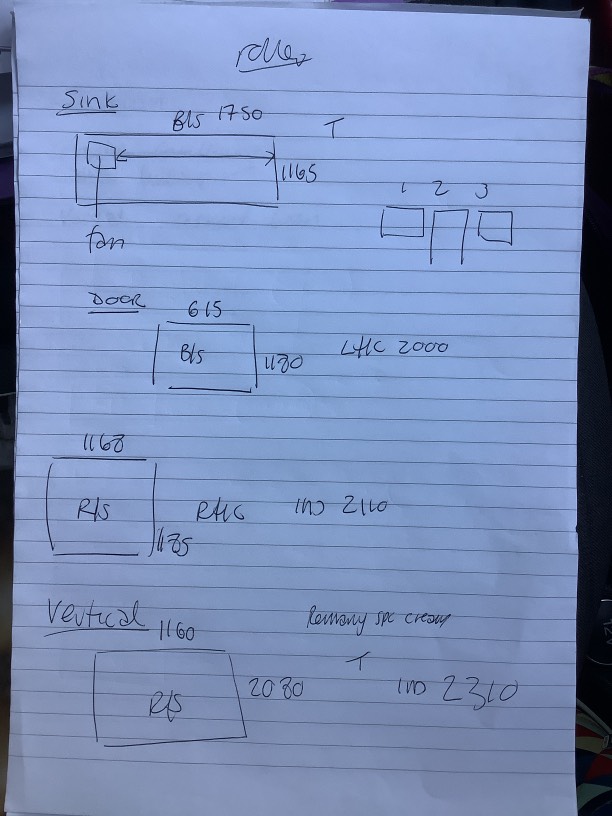 roller
Sink
B/S 1750
T
1165
1 2 3
fan
DOOR
615
B/S
1180
LHC 2000
1168
R/S
RHC
IND 2110
1185
Vertical
1160
spc cream
T
R/S
2080
IND 2310